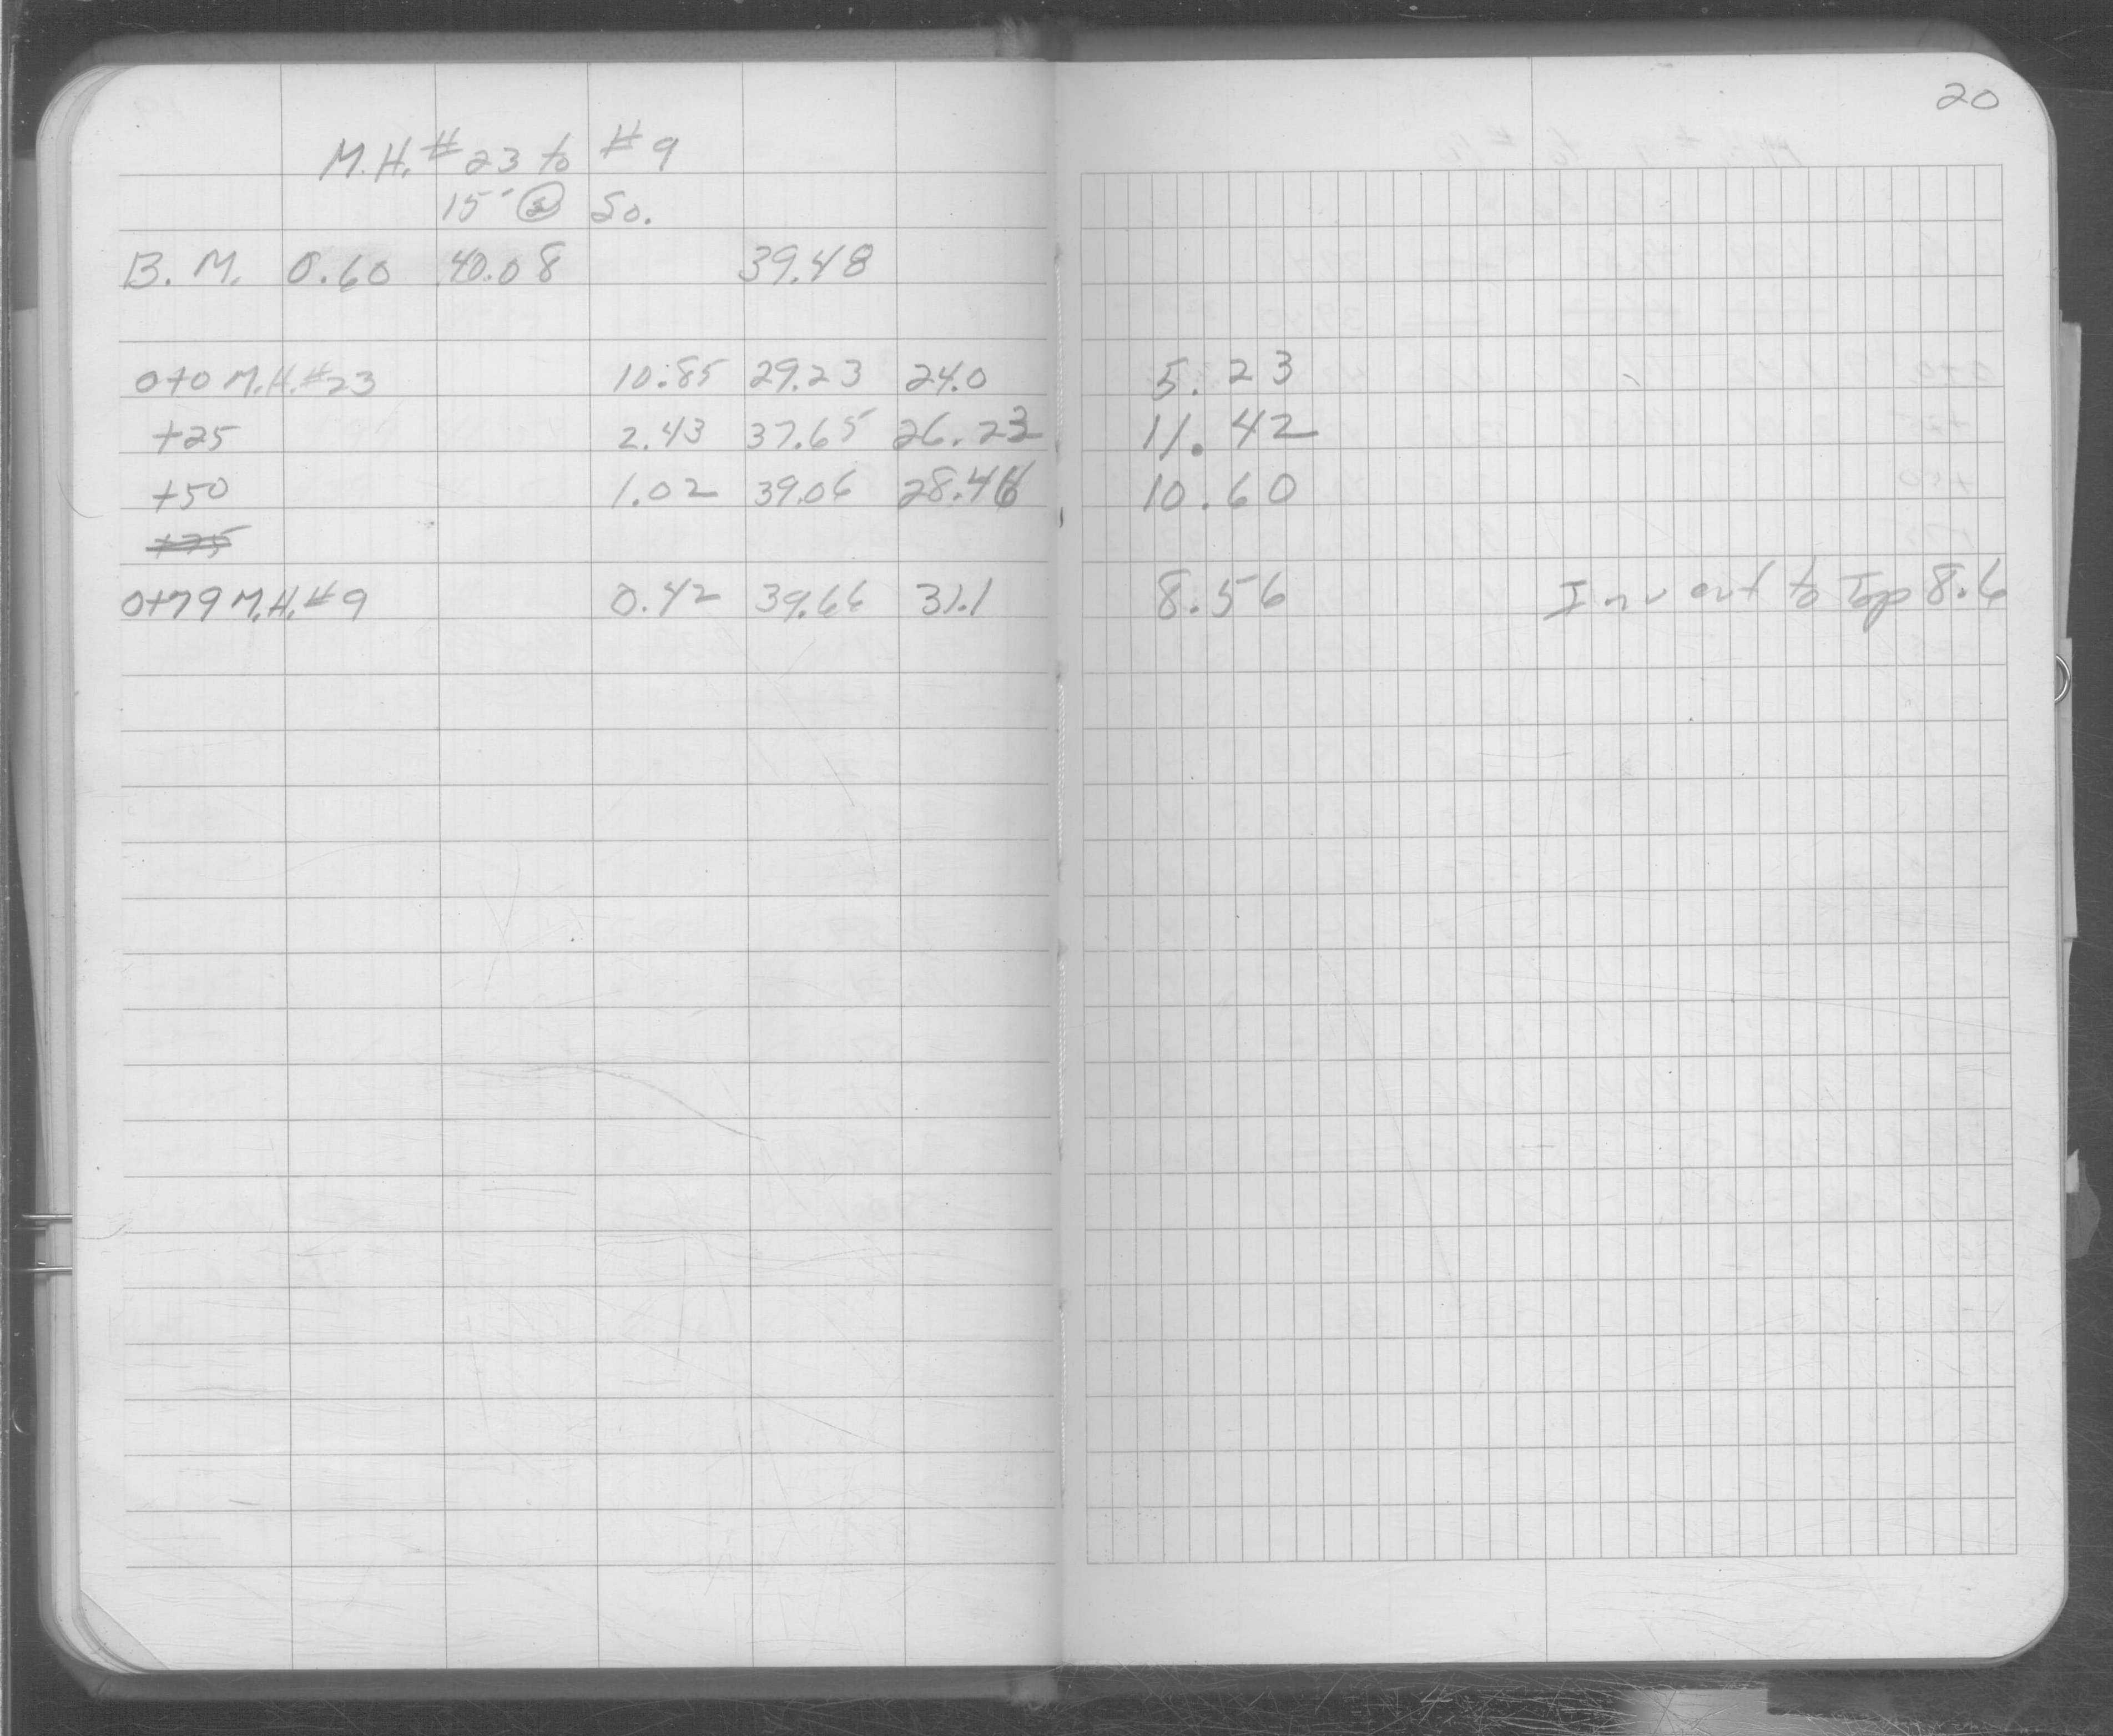 20
M.H. # 23 to # 9
15' @ So.
B.M. 0.60 40.08 39.48
0+0 M.H. #23 10.85 29.23 24.0 5.23
+25 2.43 37.65 26.23 11.42
+50 1.02 39.06 28.46 10.60
+75
0+79 M.H. #9 0.42 39.66 31.1 8.56 Invert to Top 8.6